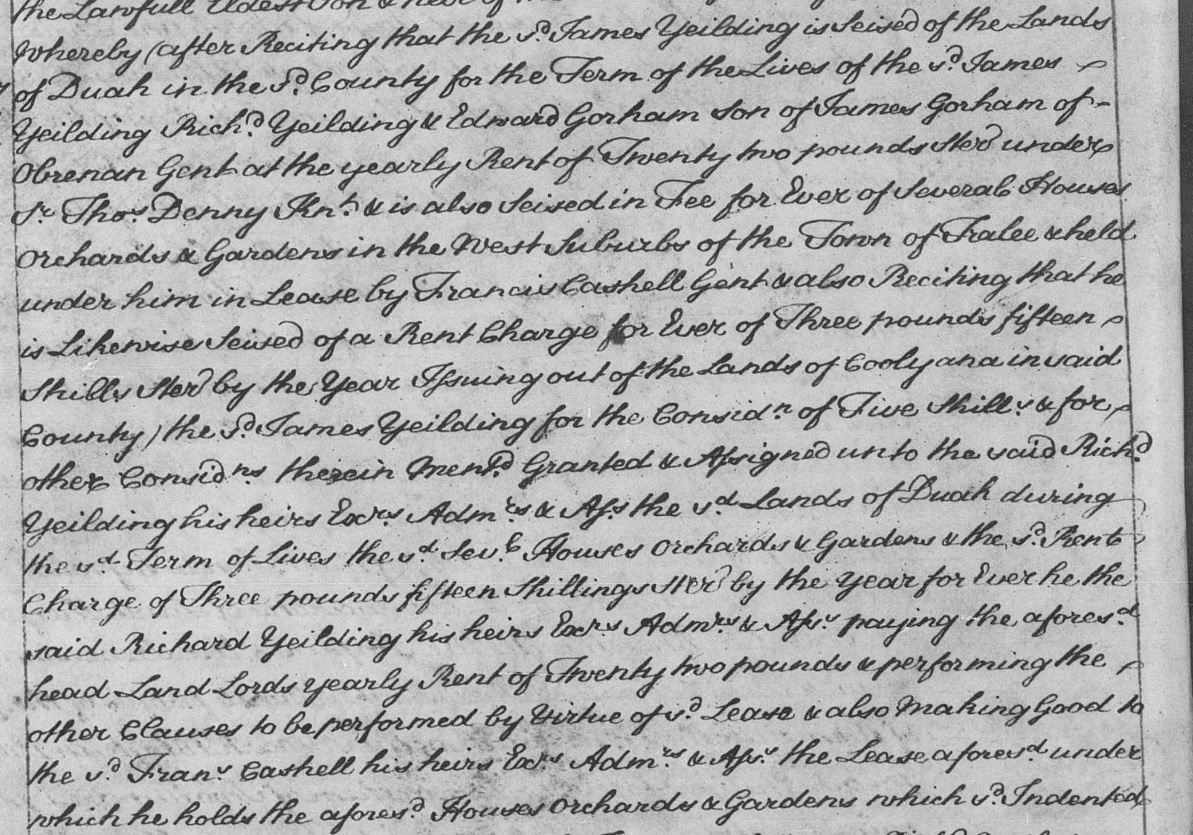 the Lawfull Eldest Son & heir of
Whereby (after Reciting that the sd. James Yeilding is Seised of the Lands
of Duah in the sd. County for the Term of the Lives of the sd. James
Yeilding Richd. Yeilding & Edward Gorham son of James Gorham of -
Obrenan Gent at the yearly Rent of Twenty two pounds sterd under
Sr. Thos. Denny Knt. & is also Seised in Fee for Ever of Severall Houses
Orchards & Gardens in the West Suburbs of the Town of Tralee & held
under him in Lease by Francis Cashell Gent & also Reciting that he
is Likewise Seised of a Rent Charge for Ever of Three pounds fifteen
Shills sterd by the Year Issuing out of the Lands of Coolyana in said
County) the sd. James Yeilding for the Considn. of Five Shills. & for
other Considns therein Mend. Granted & Assigned unto the said Richd
Yeilding his heirs Exrs. Admrs. & Asss the sd. Lands of Duah during
the sd. Term of Lives the sd. Sevl. Houses Orchards & Gardens & the sd. Rent
Charge of Three pounds fifteen Shillings sterd by the Year for Ever he the
said Richard Yeilding his heirs Exrs. Admrs. & Asss. paying the aforesd.
head Land Lords yearly Rent of Twenty two pounds & performing the
other Clauses to be performed by Virtue of sd. Lease & also Making Good to
the sd. Frans. Cashell his heirs Exrs. Admrs. & Asss. the Lease aforesd. under
which he holds the aforesd. Houses Orchards & Gardens which sd. Indented